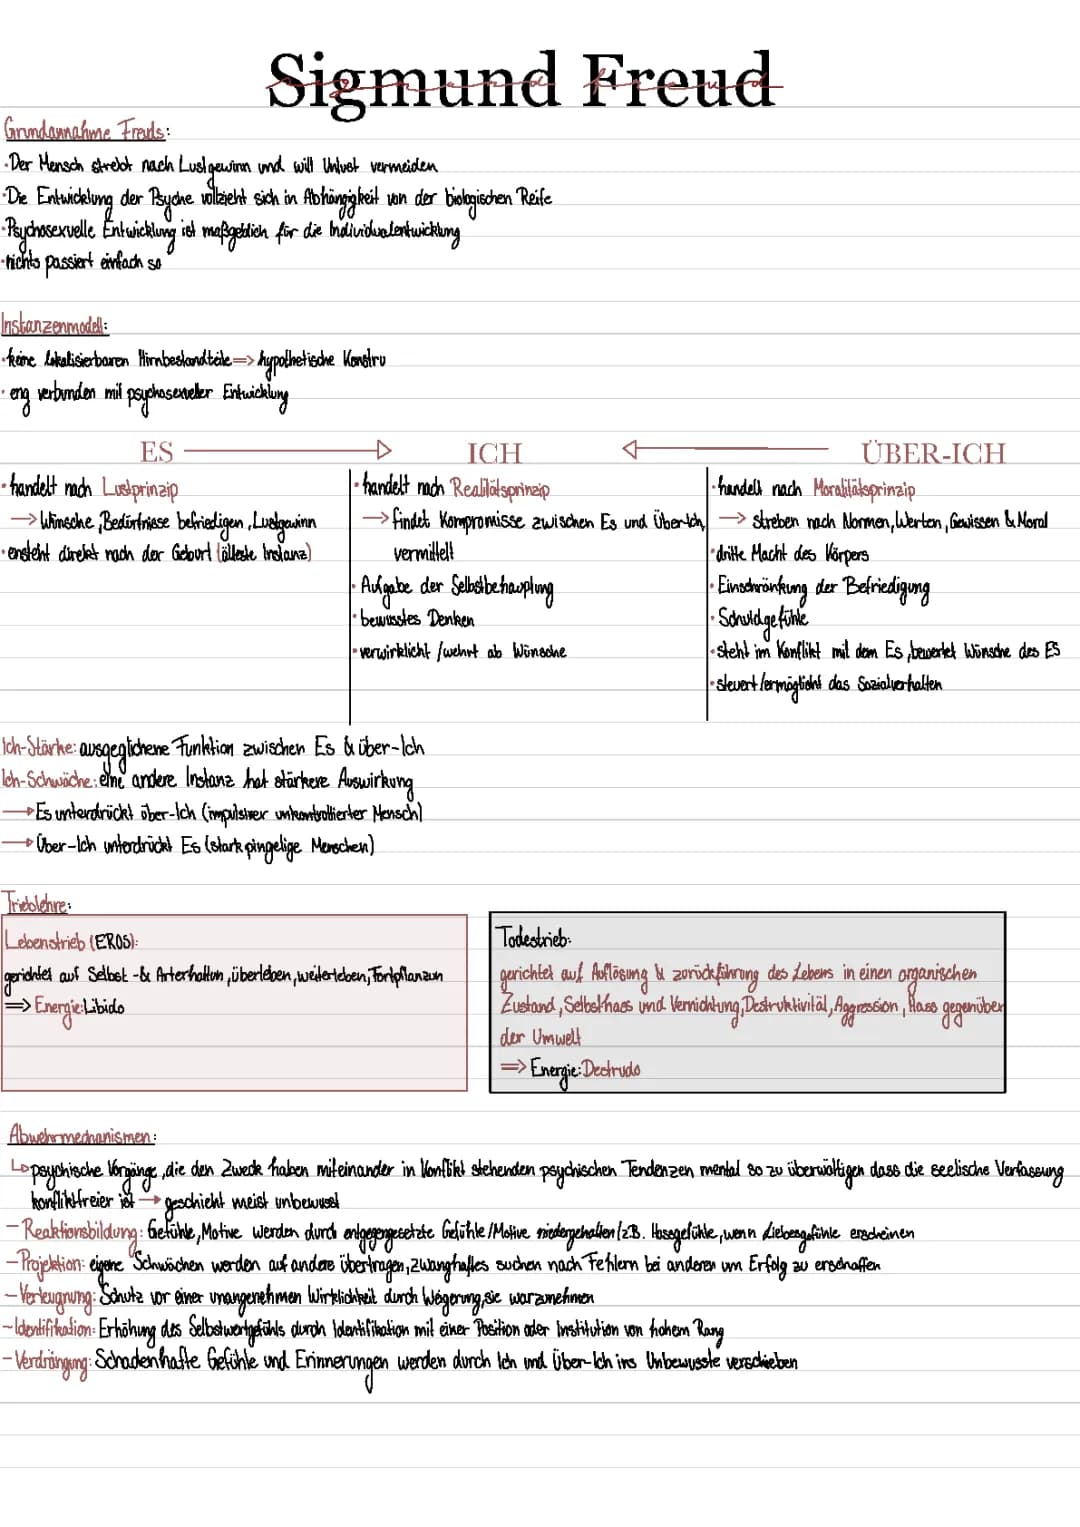 Sigmund Freud
Grundannahme Freuds:
·Der Mensch strebt nach Lustgewinn und will Unlust vermeiden
·Die Entwicklung der Psyche vollzieht sich in Abhängigkeit von der biologischen Reife
·Psychosexuelle Entwicklung ist maßgeblich für die Individualentwicklung
·nichts passiert einfach so
Instanzenmodell:
·keine lokalisierbaren Hirnbestandteile => hypothetische Konstru
·eng verbunden mit psychosexueller Entwicklung
ES → ICH ← ÜBER-ICH
·handelt nach Lustprinzip
→ Wünsche, Bedürfnisse befriedigen, Lustgewinn
·ensteht direkt nach der Geburt (älteste Instanz)
·handelt nach Realitätsprinzip
→ findet Kompromisse zwischen Es und Über-Ich,
vermittelt
·Aufgabe der Selbstbehauptung
·bewusstes Denken
·verwirklicht / wehrt ab Wünsche
·handelt nach Moralitätsprinzip
→ Streben nach Normen, Werten, Gewissen & Moral
·dritte Macht des Körpers
·Einschränkung der Befriedigung
·Schuldgefühle
·steht im Konflikt mit dem Es, bewertet Wünsche des ES
·steuert/ermöglicht das Sozialverhalten
Ich-Stärke: ausgeglichene Funktion zwischen Es & über-Ich
Ich-Schwäche: eine andere Instanz hat stärkere Auswirkung
→ Es unterdrückt über-Ich (impulsiver unkontrollierter Mensch)
→ Über-Ich unterdrückt Es (stark pingelige Menschen)
Trieblehre:
Lebenstrieb (EROS):
gerichtet auf Selbst -& Arterhaltun, überleben, weiterleben, Fortpflanzun
=> Energie: Libido
Todestrieb:
gerichtet auf Auflösung & zurückführung des Lebens in einen organischen
Zustand, Selbsthass und Vernichtung, Destruktivität, Aggression, Hass gegenüber
der Umwelt
=> Energie: Destrudo
Abwehrmechanismen:
↳ psychische Vorgänge, die den Zweck haben miteinander in Konflikt stehenden psychischen Tendenzen mental so zu überwältigen dass die seelische Verfassung
konfliktfreier ist → geschieht meist unbewusst
- Reaktionsbildung: Gefühle, Motive werden durch entgegengesetzte Gefühle/Motive niedergehalten (z.B. Hassgefühle, wenn Liebesgefühle erscheinen
- Projektion: eigene Schwächen werden auf andere übertragen, zwanghaftes suchen nach Fehlern bei anderen um Erfolg zu erschaffen
- Verleugnung: Schutz vor einer unangenehmen Wirklichkeit durch Weigerung, sie warzunehmen
- Identifikation: Erhöhung des Selbstwertgefühls durch Identifikation mit einer Position oder Institution von hohem Rang
- Verdrängung: Schadenhafte Gefühle und Erinnerungen werden durch Ich und Über-Ich ins Unbewusste verschieben